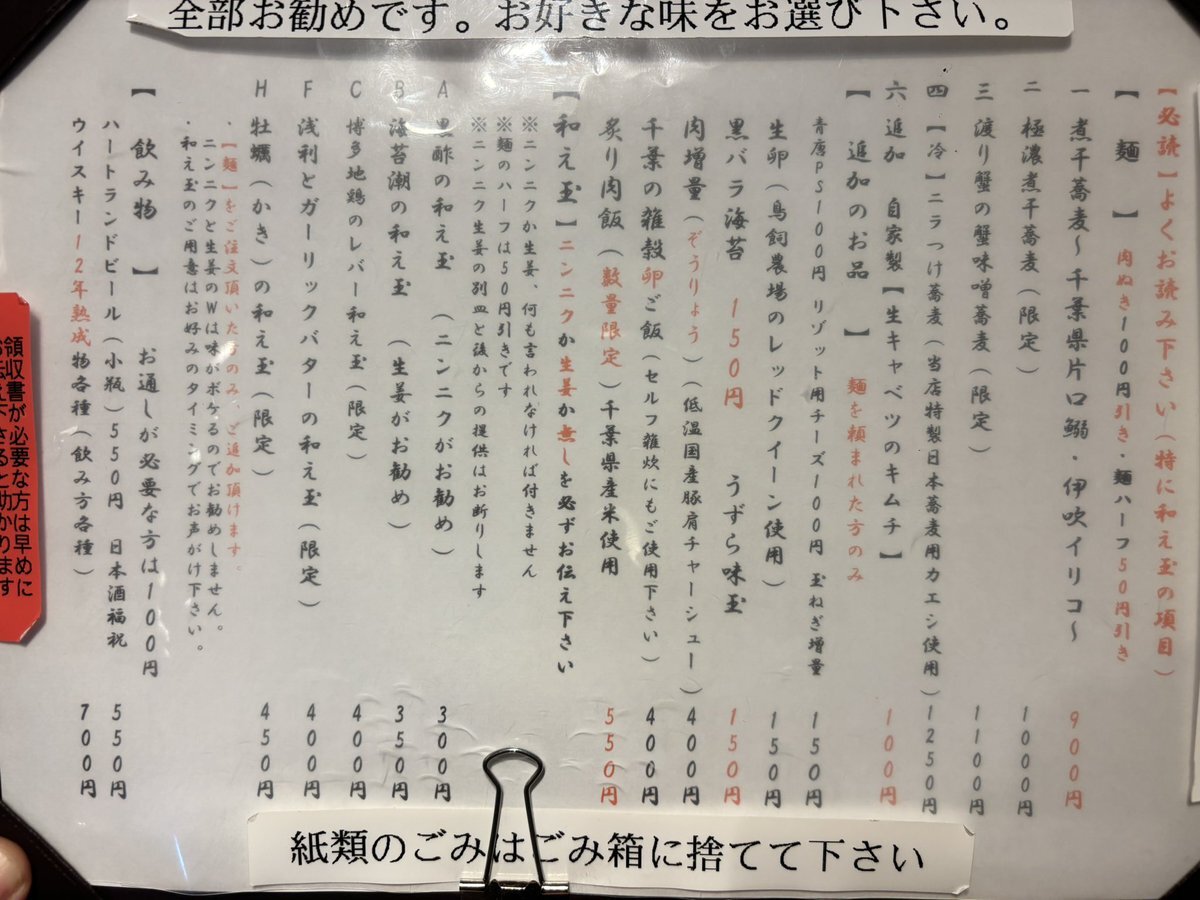 全部お勧めです。お好きな味をお選び下さい。
【必読】よくお読み下さい(特に和え玉の項目)
【麺】肉ぬき100円引き・麺ハーフ50円引き
一 煮干蕎麦~千葉県片口鰯・伊吹イリコ~ 900円
二 極濃煮干蕎麦(限定) 1000円
三 渡り蟹の蟹味噌蕎麦(限定) 1100円
四【冷】ニラつけ蕎麦(当店特製日本蕎麦用カエシ使用) 1250円
六 追加 自家製【生キャベツのキムチ】 100円
【追加のお品】麺を頼まれた方のみ
青唐PS100円 リゾット用チーズ100円 玉ねぎ増量 150円
生卵(鳥飼農場のレッドクイーン使用) 150円
黒バラ海苔 150円 うずら味玉 150円
肉増量(ぞうりょう)(低温国産豚肩チャーシュー) 400円
千葉の雑穀卵ご飯(セルフ雑炊にもご使用下さい) 400円
炙り肉飯(数量限定)千葉県産米使用 550円
【和え玉】ニンニクか生姜か無しを必ずお伝え下さい
※ニンニクか生姜、何も言われなければ付きません
※麺のハーフは50円引きです
※ニンニク生姜の別皿と後からの提供はお断りします
A 黒酢の和え玉 (ニンニクがお勧め) 300円
B 海苔潮の和え玉 (生姜がお勧め) 350円
C 博多地鶏のレバー和え玉(限定) 400円
F 浅利とガーリックバターの和え玉(限定) 400円
H 牡蠣(かき)の和え玉(限定) 450円
・【麺】をご注文頂いた方のみ、ご追加頂けます。
ニンニクと生姜のWは味がボケるのでお勧めしません。
・和え玉のご用意はお好みのタイミングでお声がけ下さい。
【飲み物】お通しが必要な方は100円
ハートランドビール(小瓶)550円 日本酒福祝 550円
ウイスキー12年熟成物各種(飲み方各種) 700円
領収書が必要な方は早めに
お伝え下さると助かります
紙類のごみはごみ箱に捨てて下さい